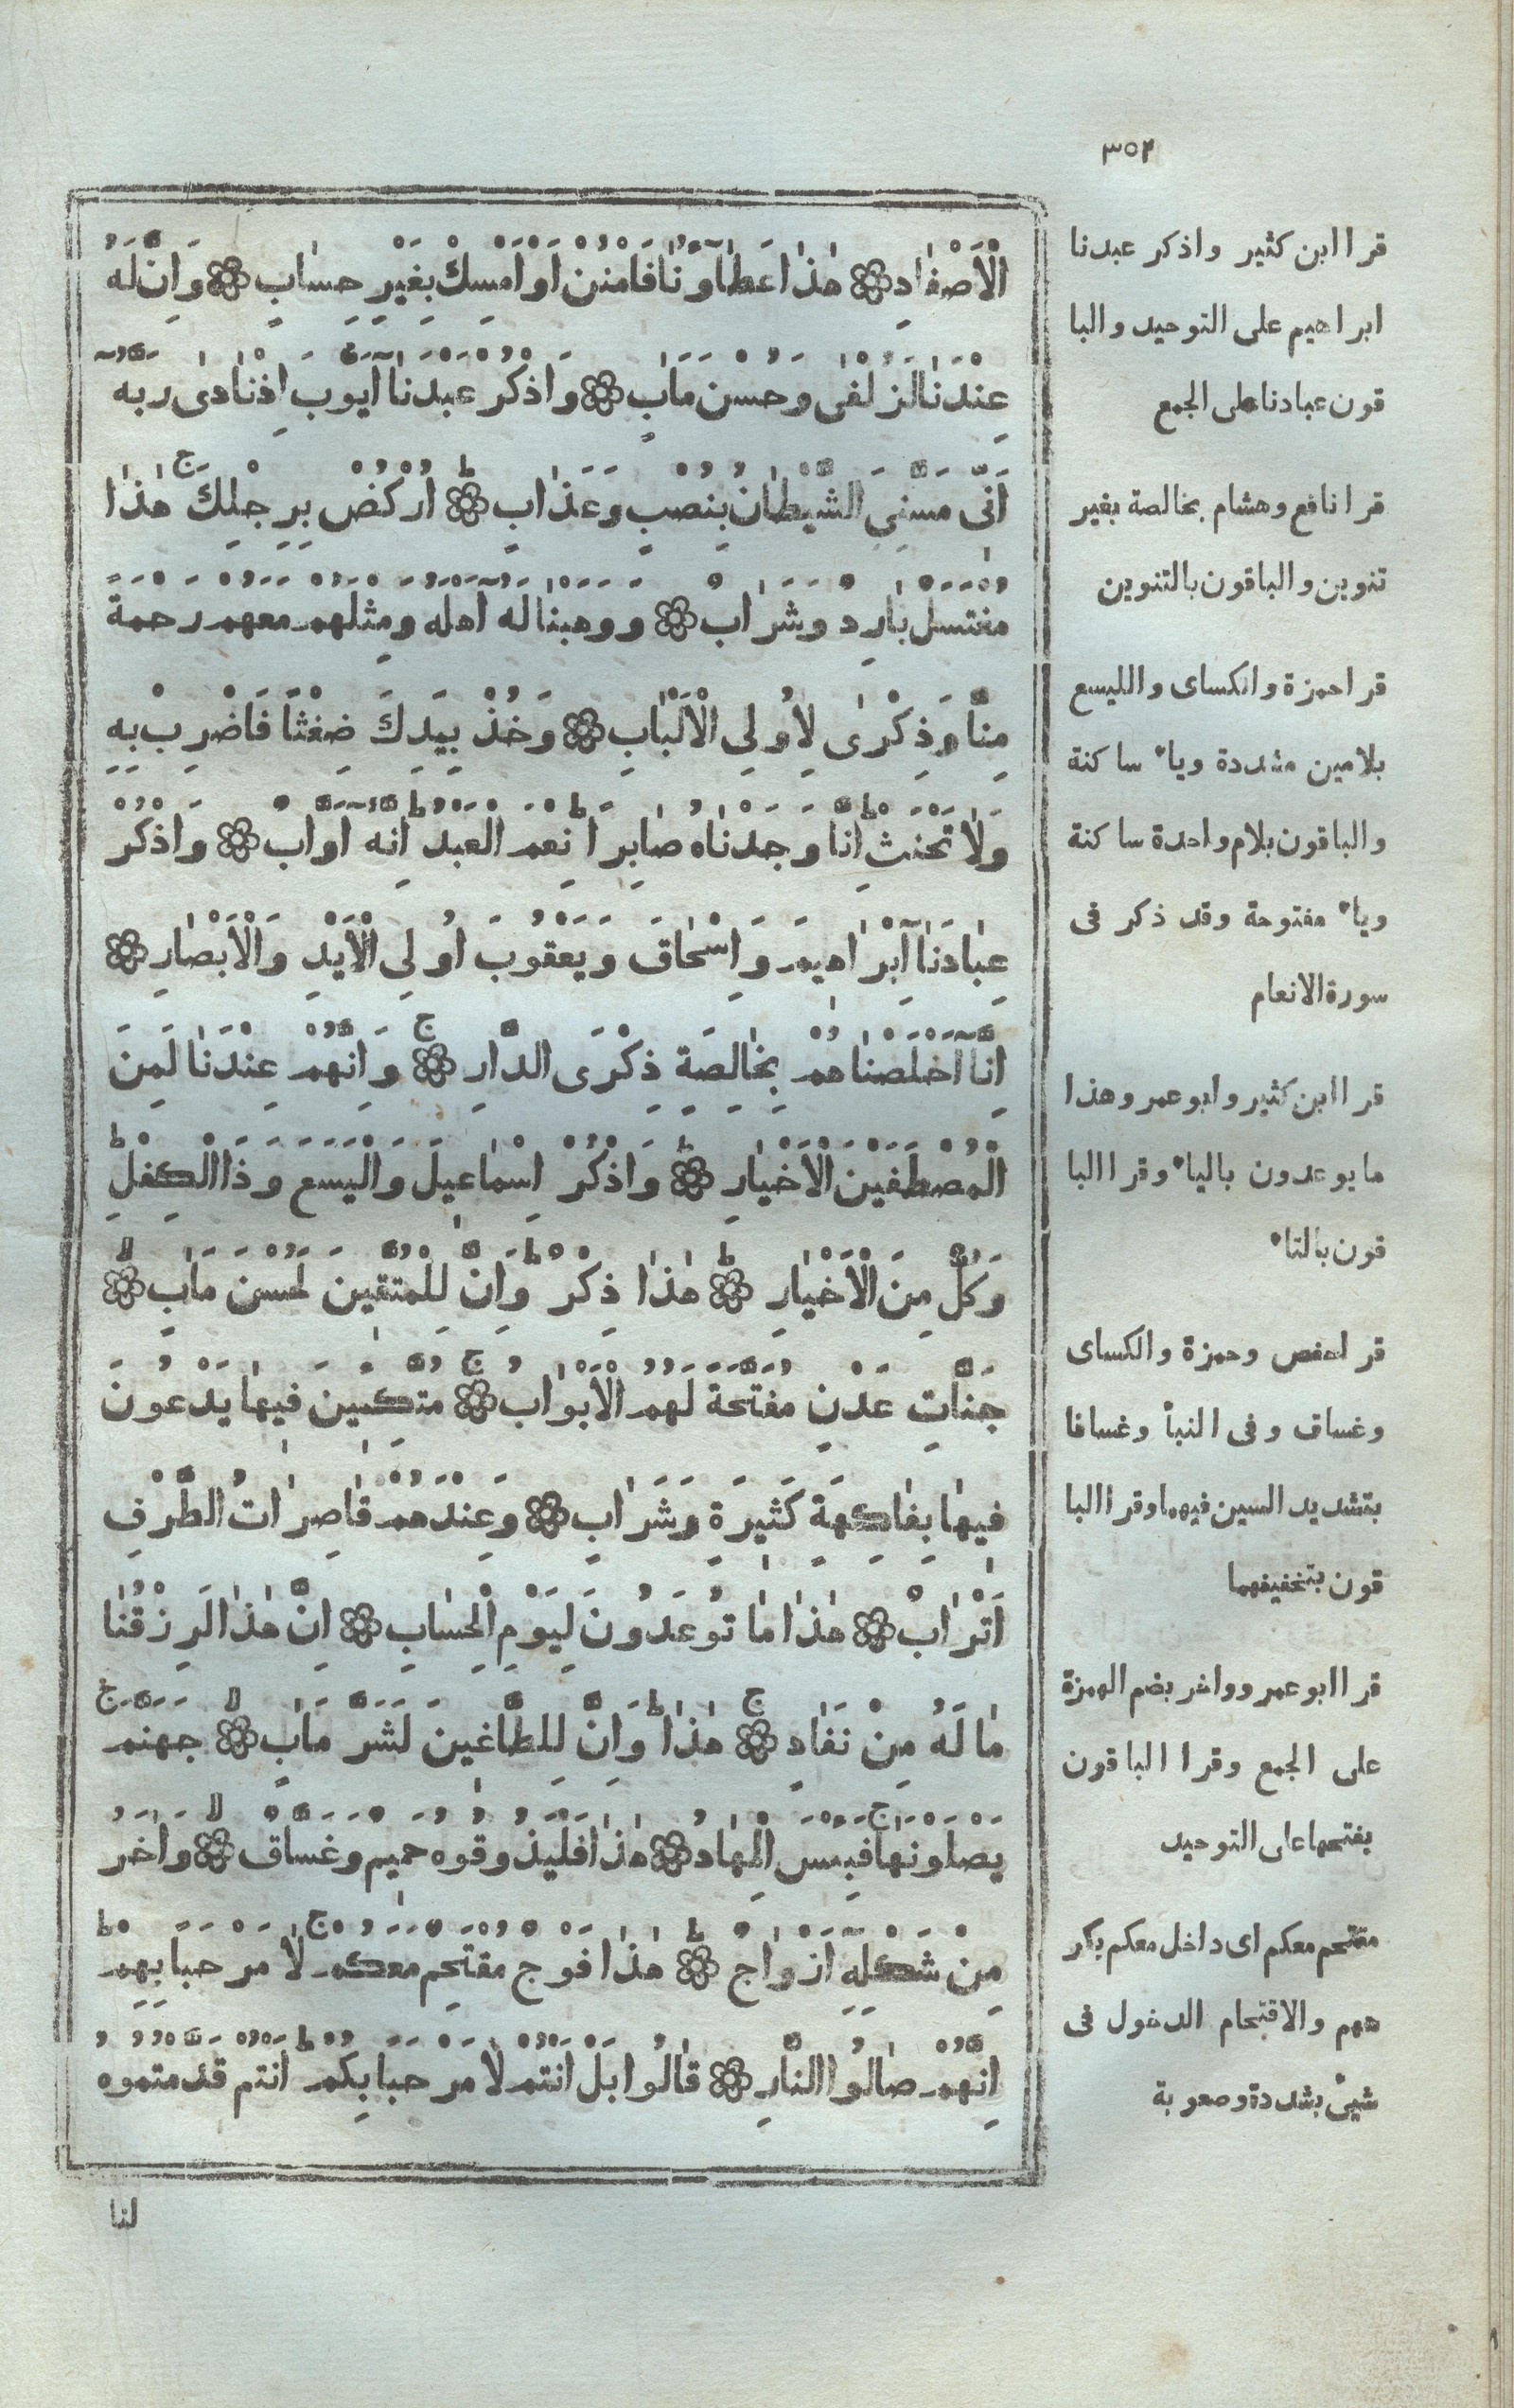 ٣٥٢
الْاَصْفَادِ ۝ هٰذَا عَطَآؤُنَا فَامْنُنْ اَوْ اَمْسِكْ بِغَيْرِ حِسَابٍ ۝ وَاِنَّ لَهُ
عِنْدَنَا لَزُلْفٰى وَحُسْنَ مَاٰبٍ ۝ وَاذْكُرْ عَبْدَنَآ اَيُّوبَ اِذْ نَادٰى رَبَّهُٓ
اَنّٖى مَسَّنِىَ الشَّيْطَانُ بِنُصْبٍ وَعَذَابٍ ۝ط اُرْكُضْ بِرِجْلِكَ ج هٰذَا
مُغْتَسَلٌ بَارِدٌ وَشَرَابٌ ۝ وَوَهَبْنَا لَهُٓ اَهْلَهُ وَمِثْلَهُمْ مَعَهُمْ رَحْمَةً
مِنَّا وَذِكْرٰى لِاُولِى الْاَلْبَابِ ۝ وَخُذْ بِيَدِكَ ضِغْثًا فَاضْرِبْ بِهِ
وَلَا تَحْنَثْ ط اِنَّا وَجَدْنَاهُ صَابِرًا ط نِعْمَ الْعَبْدُ ط اِنَّهُٓ اَوَّابٌ ۝ وَاذْكُرْ
عِبَادَنَآ اِبْرَاهٖيمَ وَاِسْحَاقَ وَيَعْقُوبَ اُولِى الْاَيْدِ وَالْاَبْصَارِ ۝
اِنَّآ اَخْلَصْنَاهُمْ بِخَالِصَةٍ ذِكْرَى الدَّارِ ۝ج وَاِنَّهُمْ عِنْدَنَا لَمِنَ
الْمُصْطَفَيْنَ الْاَخْيَارِ ۝ط وَاذْكُرْ اِسْمَاعٖيلَ وَالْيَسَعَ وَذَا الْكِفْلِ ط
وَكُلٌّ مِنَ الْاَخْيَارِ ۝ط هٰذَا ذِكْرٌ ط وَاِنَّ لِلْمُتَّقٖينَ لَحُسْنَ مَاٰبٍ ۝لا
جَنَّاتِ عَدْنٍ مُفَتَّحَةً لَهُمُ الْاَبْوَابُ ۝ج مُتَّكِـٖٔينَ فٖيهَا يَدْعُونَ
فٖيهَا بِفَاكِهَةٍ كَثٖيرَةٍ وَشَرَابٍ ۝ وَعِنْدَهُمْ قَاصِرَاتُ الطَّرْفِ
اَتْرَابٌ ۝ هٰذَا مَا تُوعَدُونَ لِيَوْمِ الْحِسَابِ ۝ اِنَّ هٰذَا لَرِزْقُنَا
مَا لَهُ مِنْ نَفَادٍ ۝ج هٰذَا ط وَاِنَّ لِلطَّاغٖينَ لَشَرَّ مَاٰبٍ ۝لا جَهَنَّمَ ج
يَصْلَوْنَهَا ج فَبِئْسَ الْمِهَادُ ۝ هٰذَا فَلْيَذُوقُوهُ حَمٖيمٌ وَغَسَّاقٌ ۝لا وَاٰخَرُ
مِنْ شَكْلِهٖٓ اَزْوَاجٌ ۝ط هٰذَا فَوْجٌ مُقْتَحِمٌ مَعَكُمْ ج لَا مَرْحَبًا بِهِمْ ط
اِنَّهُمْ صَالُوا النَّارِ ۝ قَالُوا بَلْ اَنْتُمْ لَا مَرْحَبًا بِكُمْ ط اَنْتُمْ قَدَّمْتُمُوهُ
لنا
قرا ابن كثير واذكر عبدنا
ابراهيم على التوحيد والبا
قون عبادنا على الجمع
قرا نافع وهشام بخالصة بغير
تنوين والباقون بالتنوين
قرا حمزة والكساى والليسع
بلامين مشددة وياء ساكنة
والباقون بلام واحدة ساكنة
وياء مفتوحة وقد ذكر فى
سورة الانعام
قرا ابن كثير وابو عمرو هذا
ما يوعدون بالياء وقرا البا
قون بالتاء
قرا حفص وحمزة والكساى
وغساق وفى النبأ وغساقا
بتشديد السين فيهما وقرا البا
قون بتخفيفهما
قرا ابو عمرو واخر بضم الهمزة
على الجمع وقرا الباقون
بفتحها على التوحيد
مقتحم معكم اى داخل معكم بكر
ههم والاقتحام الدخول فى
شيئ بشددة وصعوبة